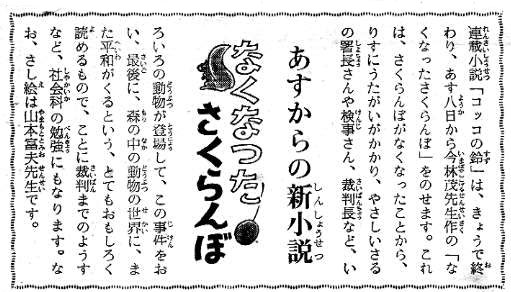 連載小説「コッコの鈴」は、きょうで終
わり、あす八日から今林茂先生作の「な
くなったさくらんぼ」をのせます。これ
は、さくらんぼがなくなったことから、
りすにうたがいがかかり、やさしいさる
の署長さんや検事さん、裁判長など、い
あすからの新小説
なくなった
さくらんぼ
ろいろの動物が登場して、この事件をお
い、最後に、森の中の動物の世界に、ま
た平和がくるという、とてもおもしろく
読めるもので、ことに裁判までのようす
など、社会科の勉強にもなります。な
お、さし絵は山本富夫先生です。